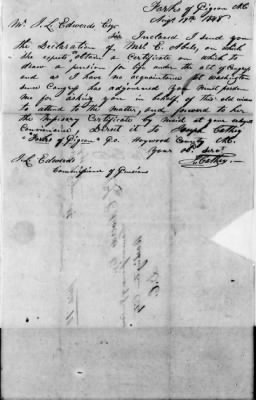 Forks of Pigeon NC
Augt 19th 1848
Mr. J. L. Edwards Esqr
Sir Inclosed I send you
the Declaration of Mrs E. Able, on which
she expects obtain a Certificate on which to
draw a pension for life under the act of Congress
and as I have no acquaintance at Washington
since Congress has adjourned you must pardon
me for asking you on behalf of this old woman
to attend to the matter, and forward to her
the Certificate by mail at your
Convenience, Direct it to Joseph Cathey
"Forks of Pigeon" P.O. Haywood County NC.
Your Ob. Servt
J. Cathey
J. L. Edwards
Commissioner of Pensions